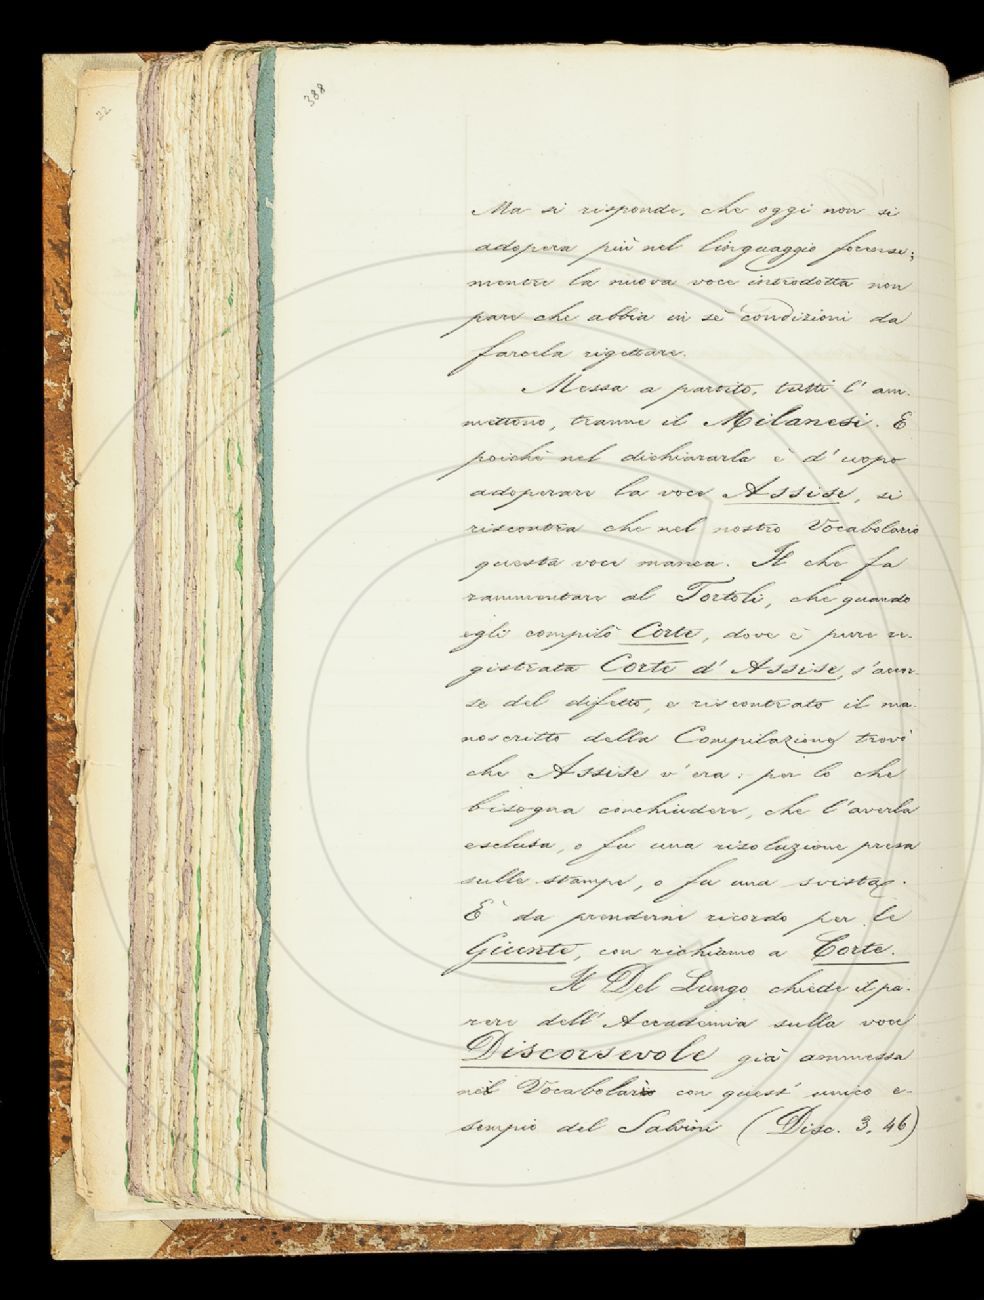 22
388
Ma si risponde, che oggi non si
adopera più nel linguaggio forense;
mentre la nuova voce introdotta non
pare che abbia in sè condizioni da
farcela rigettare.
Messa a partito, tutti l' am-
mettono, tranne il Milanesi. E
poichè nel dichiararla è d' uopo
adoperare la voce Assise, si
riscontra che nel nostro Vocabolario
questa voce manca. Il che fa
rammentare al Tortoli, che quando
egli compilò Corte, dove è pure re-
gistrata Corte d' Assise, s' accor-
se del difetto, e riscontrato il ma-
noscritto della Compilazione trovò
che Assise v' era: per lo che
bisogna conchiudere, che l' averla
esclusa, o fu una risoluzione presa
sulle stampe, o fu una svista.
E' da prenderne ricordo per le
Giunte, con richiamo a Corte.
Il Del Lungo chiede il pa-
rere dell' Accademia sulla voce
Discorsevole già ammessa
nel Vocabolario con quest' unico e-
sempio del Salvini (Disc. 3. 46)